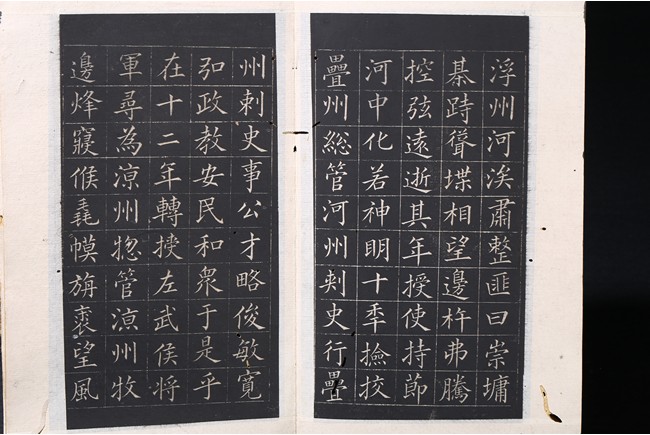 浮州河渓肅整匪曰崇墉
棊跱聳堞相望邊杵弗騰
控弦遠逝其年授使持節
河中化若神明十秊撿挍
疊州総管河州刾史行疊
州刺史事公才略俊敏寬
弘政教安民和衆于是乎
在十二年轉授左武侯將
軍尋為涼州惣管涼州牧
邊烽寢候毳幙旃裘望風